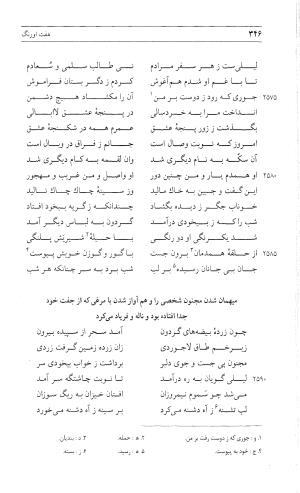 ۳۴۶ هفت اورنگ
لیلی‌ست ز هر سفر مرادم نـی طالب سلمی و سُعادم
تـا بـا غم او شدم هم‌آغوش کردم ز دگر بستان فراموش
۲۵۷۵ جوری که رود ز دوست بر من۱ آن را مکناد هیچ دشمن
انداخت مرا به خردسالی در پنجهٔ عشق لاابالی
بگذشت ز زور پنجهٔ عشق عمرم همه در شکنجهٔ عشق
امروز که نوبت وصال است جانم ز فراق در وبال است
آن سکّه به نام دیگری شد وان لقمه به کام دیگری شد
۲۵۸۰ او همدم یار و من چنین دور او واصل و من غریب و مهجور
این گفت و جبین به خاک مالید وز سینهٔ چاک چاک نالید
خوناب جگر ز دیده بگشاد چندانکه ز گریه بیخود افتاد
شب را که ز بیخودی درآمد گردون به لباس دیگر آمد
شد یکرنگی او دو رنگی با حیلهٔ۲ شیریش پلنگی
۲۵۸۵ از حلقهٔ همدمان۳ برون جست با گور و گوزن خویش پیوست۴
جان بی جانان رسیده۵ بر لب شب برد به سر چنانکه هر شب
میهمان شدن مجنون شخصی را و هم آواز شدن با مرغی که از جفت خود
جدا افتاده بود و ناله و فریاد می‌کرد
چون زردهٔ بیضه‌های گردون آمد سحر از سپیده بیرون
زیر خم طاق لاجوردی زان زرده زمین گرفت زردی
مجنون پی جست و جوی دلبر برداشت ز خواب بیخودی سر
۲۵۹۰ لیلی گویان به ره درآمد تا نوبت چاشتگه سر آمد
چون شد ز سموم نیمروزان خاک افگر خیزان به ریگ سوزان
لب تشنه۶ ز آه دشنه می‌خورد بر سینه ز آه دشنه می‌خورد
۱. و : جوری که ز دوست رفت بر من. ۲. ه : حمله. ۳. د : بندیان.
۴. ج : خود به پیوست. ۵. ه : رسید. ۶. ز : بسته.